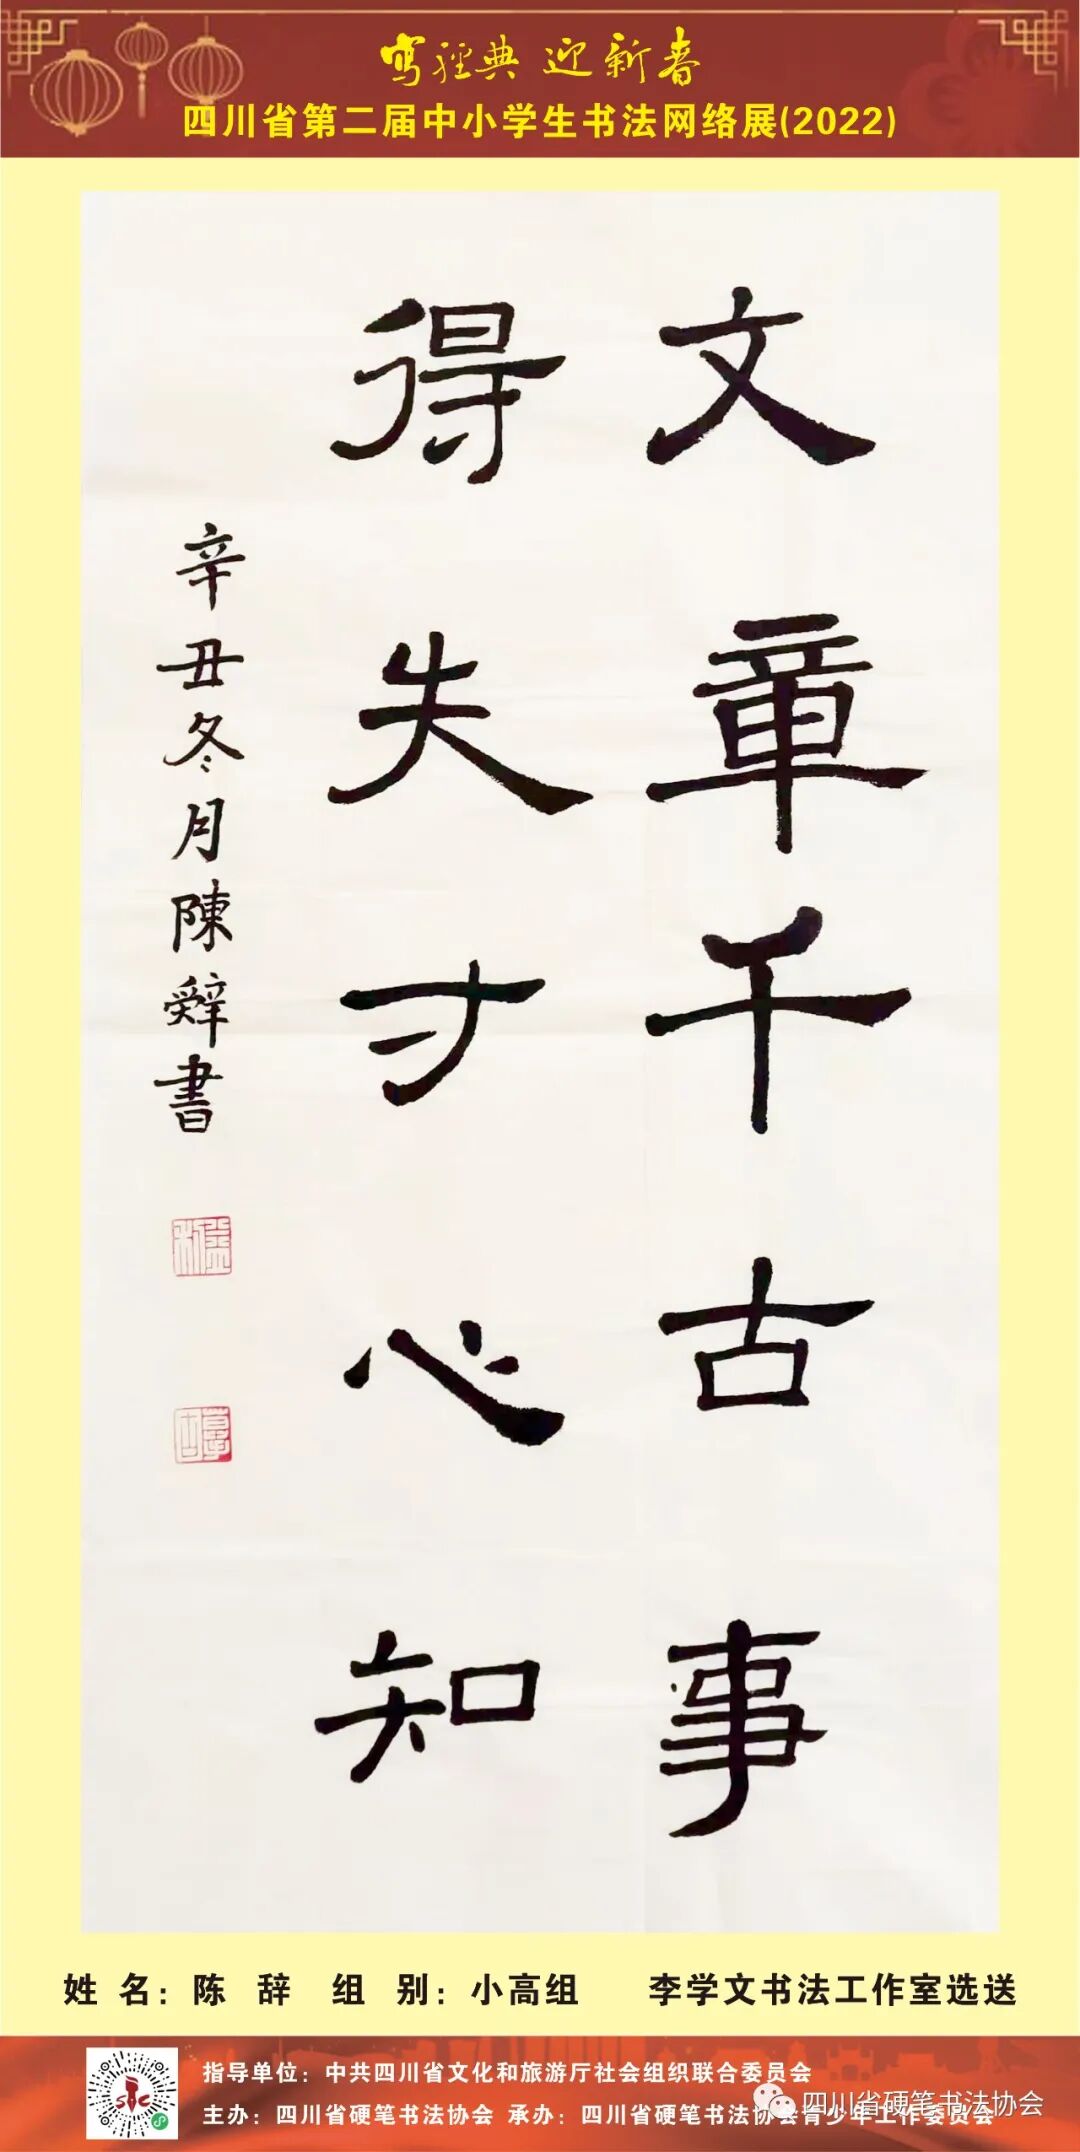 写經典 迎新春
四川省第二届中小学生书法网络展(2022)
文章千古事
得失寸心知
辛丑冬月陳辭書
姓 名：陈 辞 组 别：小高组 李学文书法工作室选送
指导单位：中共四川省文化和旅游厅社会组织联合委员会
主办：四川省硬笔书法协会 承办：四川省硬笔书法协会青少年工作委员会
四川省硬笔书法协会